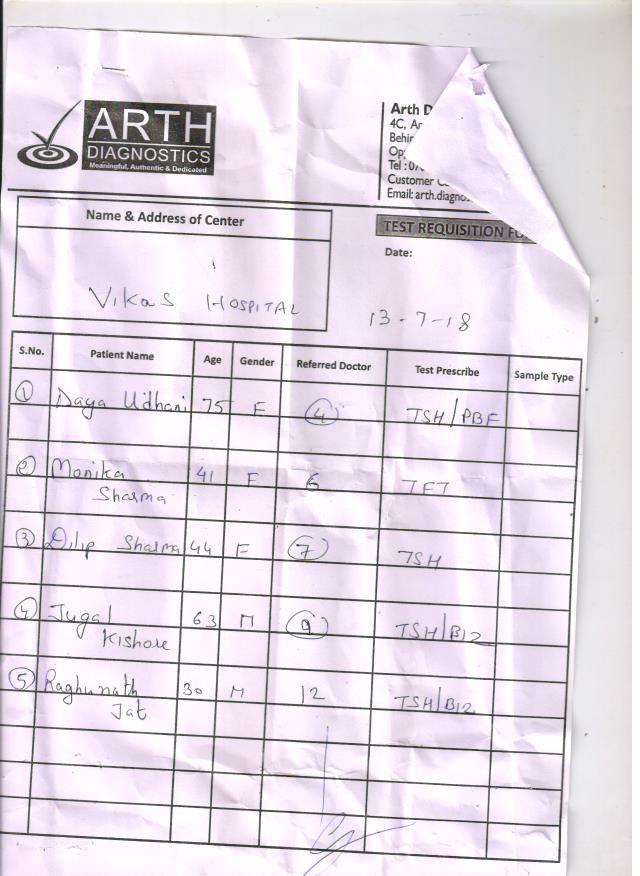 ARTH
DIAGNOSTICS
Meaningful, Authentic & Dedicated
Arth D
4C, Ar
Behin
Op
Tel : 07
Customer C
Email: arth.diagno
Name & Address of Center
TEST REQUISITION FO
Date:
Vikas HOSPITAL
13-7-18
S.No. Patient Name Age Gender Referred Doctor Test Prescribe Sample Type
1 Daya Udhani 75 F 4 TSH/PBF
2 Monika Sharma 41 F 6 TFT
3 Dilip Sharma 44 F 7 TSH
4 Jugal Kishore 63 M 9 TSH/B12
5 Raghunath Jat 30 M 12 TSH/B12